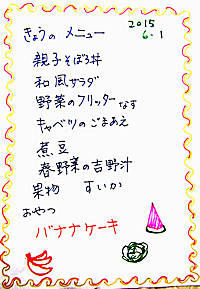 きょうの メニュー
2015
6.1
親子そぼろ丼
和風サラダ
野菜のフリッター なす
キャベツのごまあえ
煮豆
春野菜の吉野汁
果物 すいか
おやつ
バナナケーキ